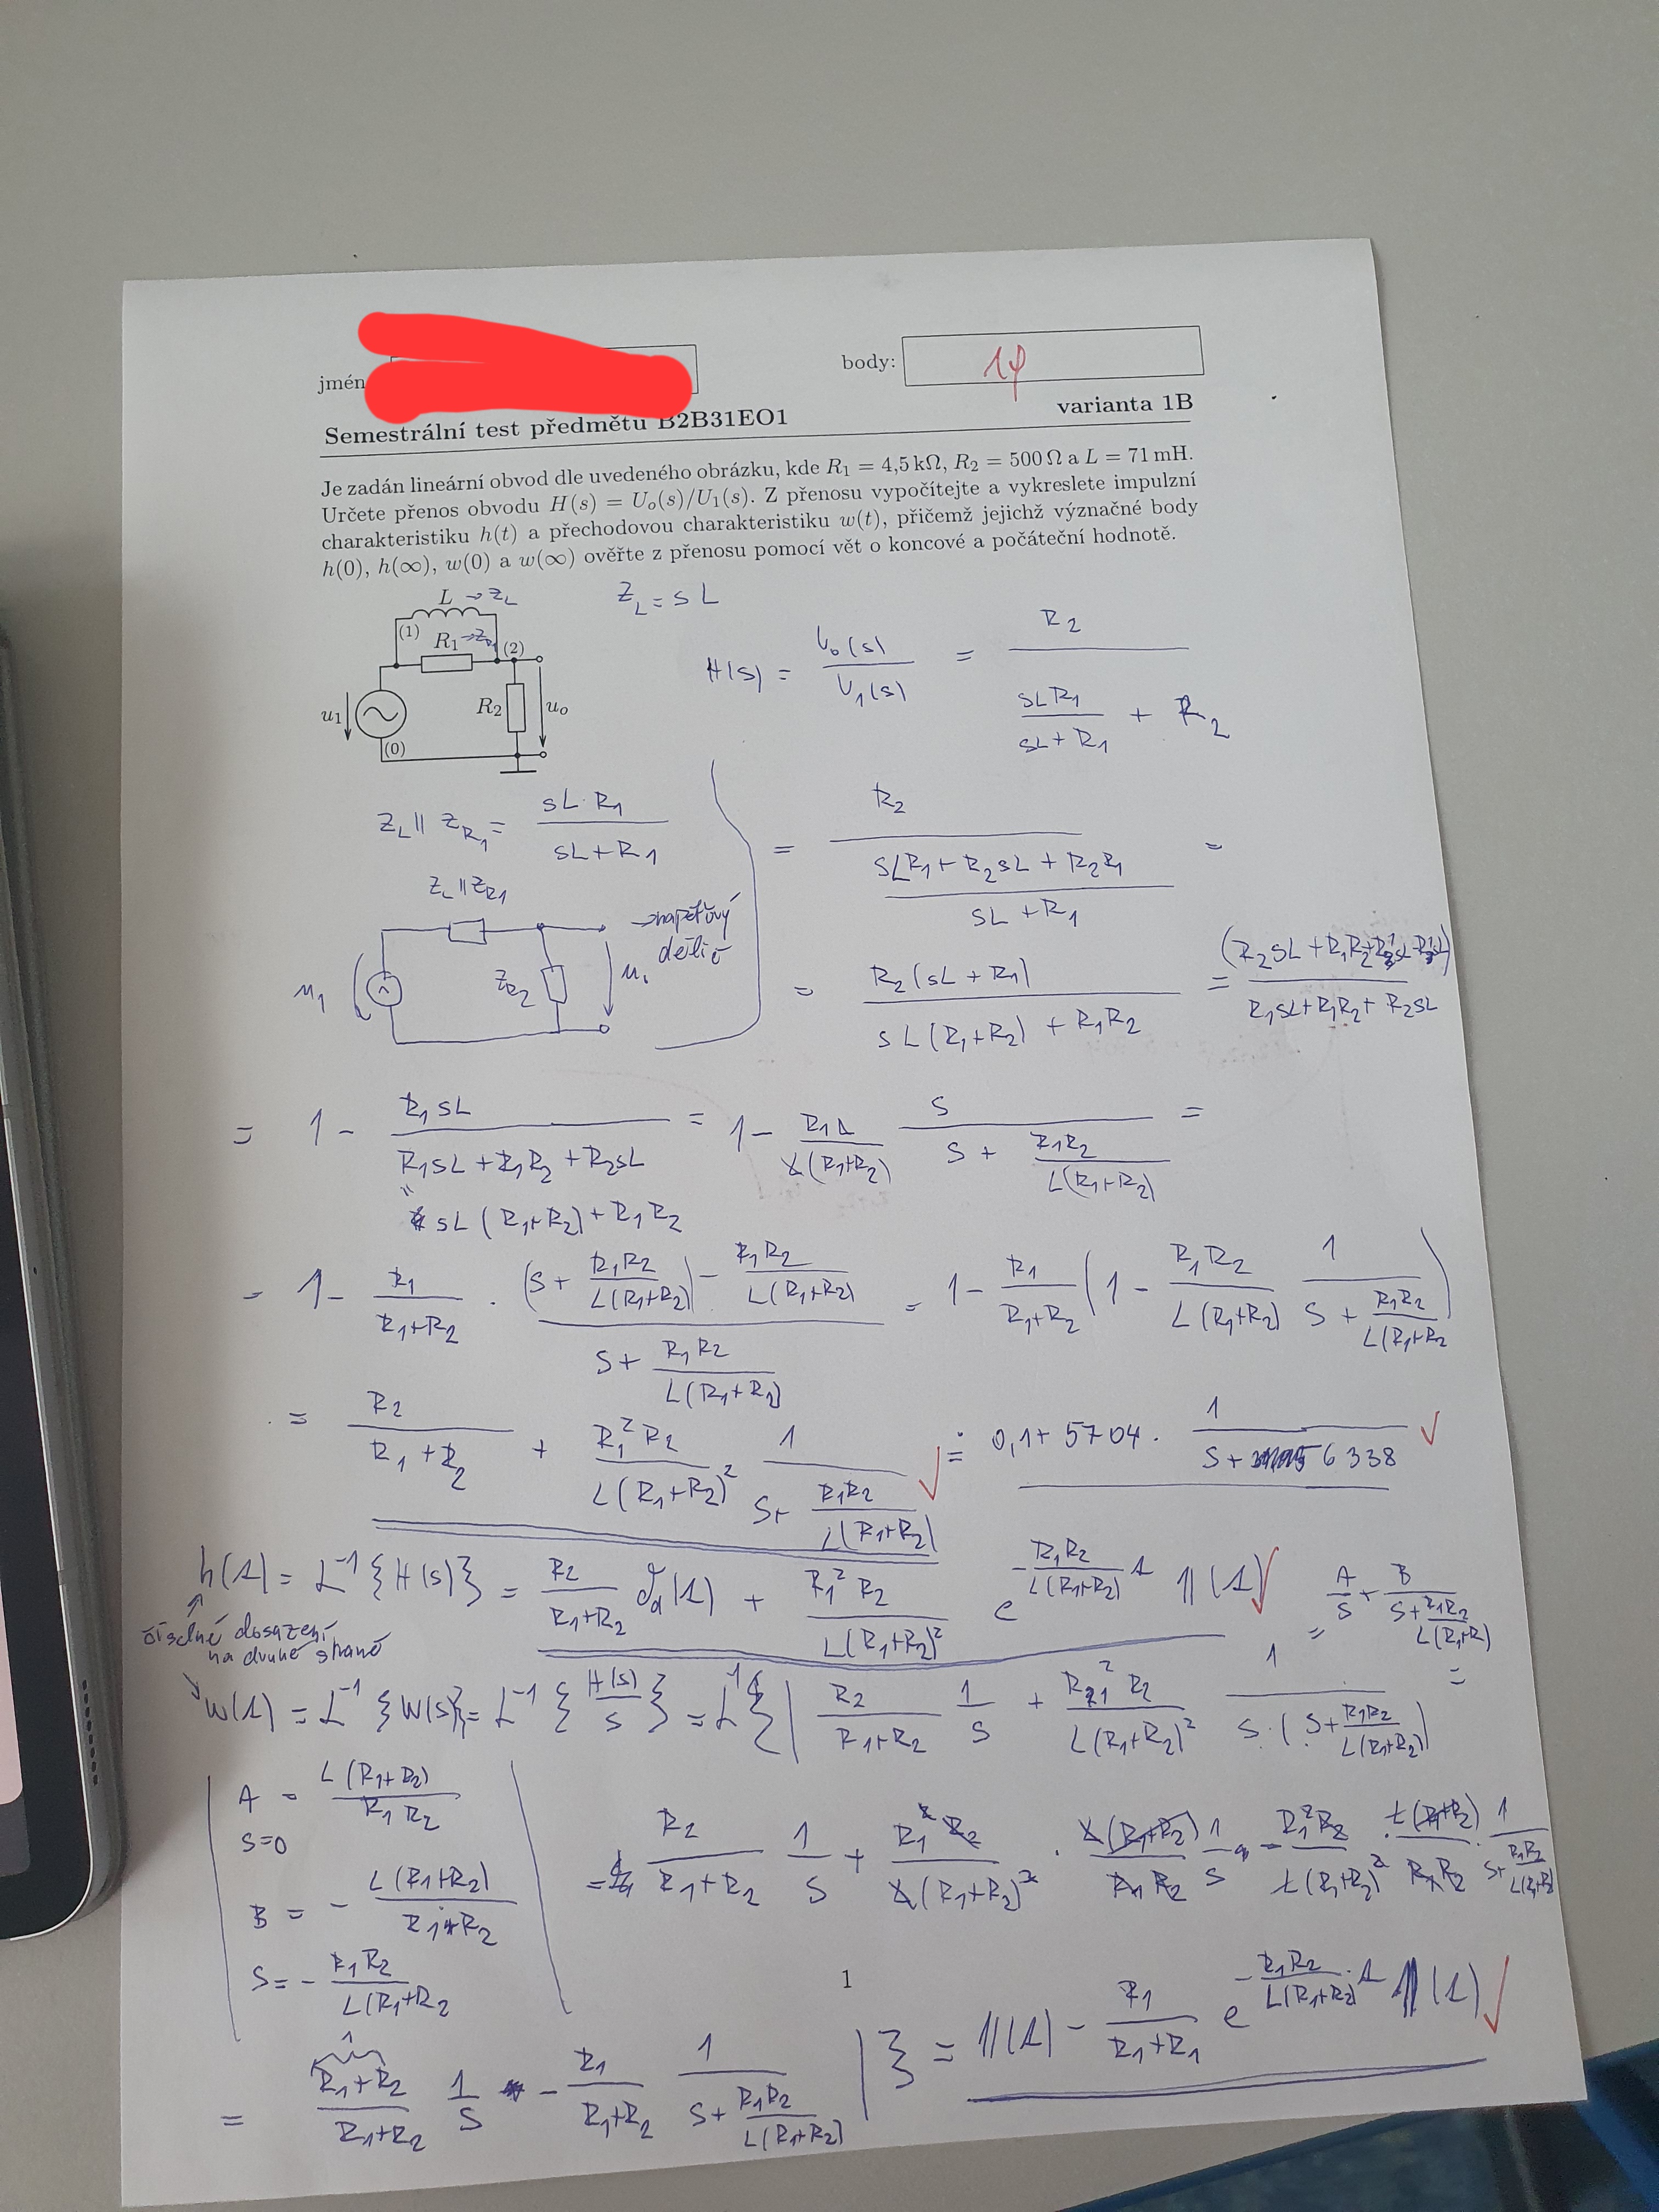 jmén
body: 14
Semestrální test předmětu B2B31EO1 varianta 1B
Je zadán lineární obvod dle uvedeného obrázku, kde R₁ = 4,5 kΩ, R₂ = 500 Ω a L = 71 mH.
Určete přenos obvodu H(s) = Uₒ(s)/U₁(s). Z přenosu vypočítejte a vykreslete impulzní
charakteristiku h(t) a přechodovou charakteristiku w(t), přičemž jejichž význačné body
h(0), h(∞), w(0) a w(∞) ověřte z přenosu pomocí vět o koncové a počáteční hodnotě.
L → Z_L
(1) R₁ → Z_R₁ (2)
u₁ R₂ uₒ
(0)
Z_L = sL
H(s) = U₀(s) / U₁(s) = R₂ / (sLR₁ / (sL + R₁) + R₂)
Z_L || Z_R₁ = sL·R₁ / (sL + R₁)
= R₂ / ((sLR₁ + R₂sL + R₂R₁) / (sL + R₁)) =
Z_L || Z_R1
→ napěťový
dělič
u₁ Z_R2 u₀
= R₂(sL + R₁) / (sL(R₁+R₂) + R₁R₂)
= (R₂sL + R₁R₂ + R₁sL - R₁sL) / (R₁sL + R₁R₂ + R₂sL)
= 1 - R₁sL / (R₁sL + R₁R₂ + R₂sL) = 1 - R₁L / (L(R₁+R₂)) · s / (s + R₁R₂ / (L(R₁+R₂))) =
" sL(R₁+R₂) + R₁R₂
= 1 - R₁ / (R₁+R₂) · ((s + R₁R₂ / (L(R₁+R₂))) - R₁R₂ / (L(R₁+R₂))) / (s + R₁R₂ / (L(R₁+R₂))) = 1 - R₁ / (R₁+R₂) (1 - R₁R₂ / (L(R₁+R₂)) · 1 / (s + R₁R₂ / (L(R₁+R₂)))
= R₂ / (R₁+R₂) + R₁²R₂ / (L(R₁+R₂)²) · 1 / (s + R₁R₂ / (L(R₁+R₂))) ✓ ≐ 0,1 + 5704 · 1 / (s + 6338) ✓
h(t) = L⁻¹{H(s)} = R₂ / (R₁+R₂) δ(t) + R₁²R₂ / (L(R₁+R₂)²) e^(-R₁R₂ / (L(R₁+R₂)) t) 1(t) ✓
číselné dosazení
na druhé straně
= A/s + B / (s + R₁R₂ / (L(R₁+R₂)))
w(t) = L⁻¹{W(s)} = L⁻¹{H(s)/s} = L⁻¹{| R₂ / (R₁+R₂) · 1/s + R₁²R₂ / (L(R₁+R₂)²) · 1 / (s·(s + R₁R₂ / (L(R₁+R₂)))) =
A = L(R₁+R₂) / R₁R₂
s=0
B = - L(R₁+R₂) / R₁R₂
s = - R₁R₂ / L(R₁+R₂
= R₂ / (R₁+R₂) · 1/s + R₁²R₂ / (L(R₁+R₂)²) · L(R₁+R₂) / R₁R₂ · 1/s - R₁²R₂ / (L(R₁+R₂)²) · L(R₁+R₂) / R₁R₂ · 1 / (s + R₁R₂ / (L(R₁+R₂)))
1
= R₁+R₂ / (R₁+R₂) · 1/s - R₁ / (R₁+R₂) · 1 / (s + R₁R₂ / (L(R₁+R₂))) |} = 1(t) - R₁ / (R₁+R₁) e^(-R₁R₂ / (L(R₁+R₂)) · t) 1(t) ✓